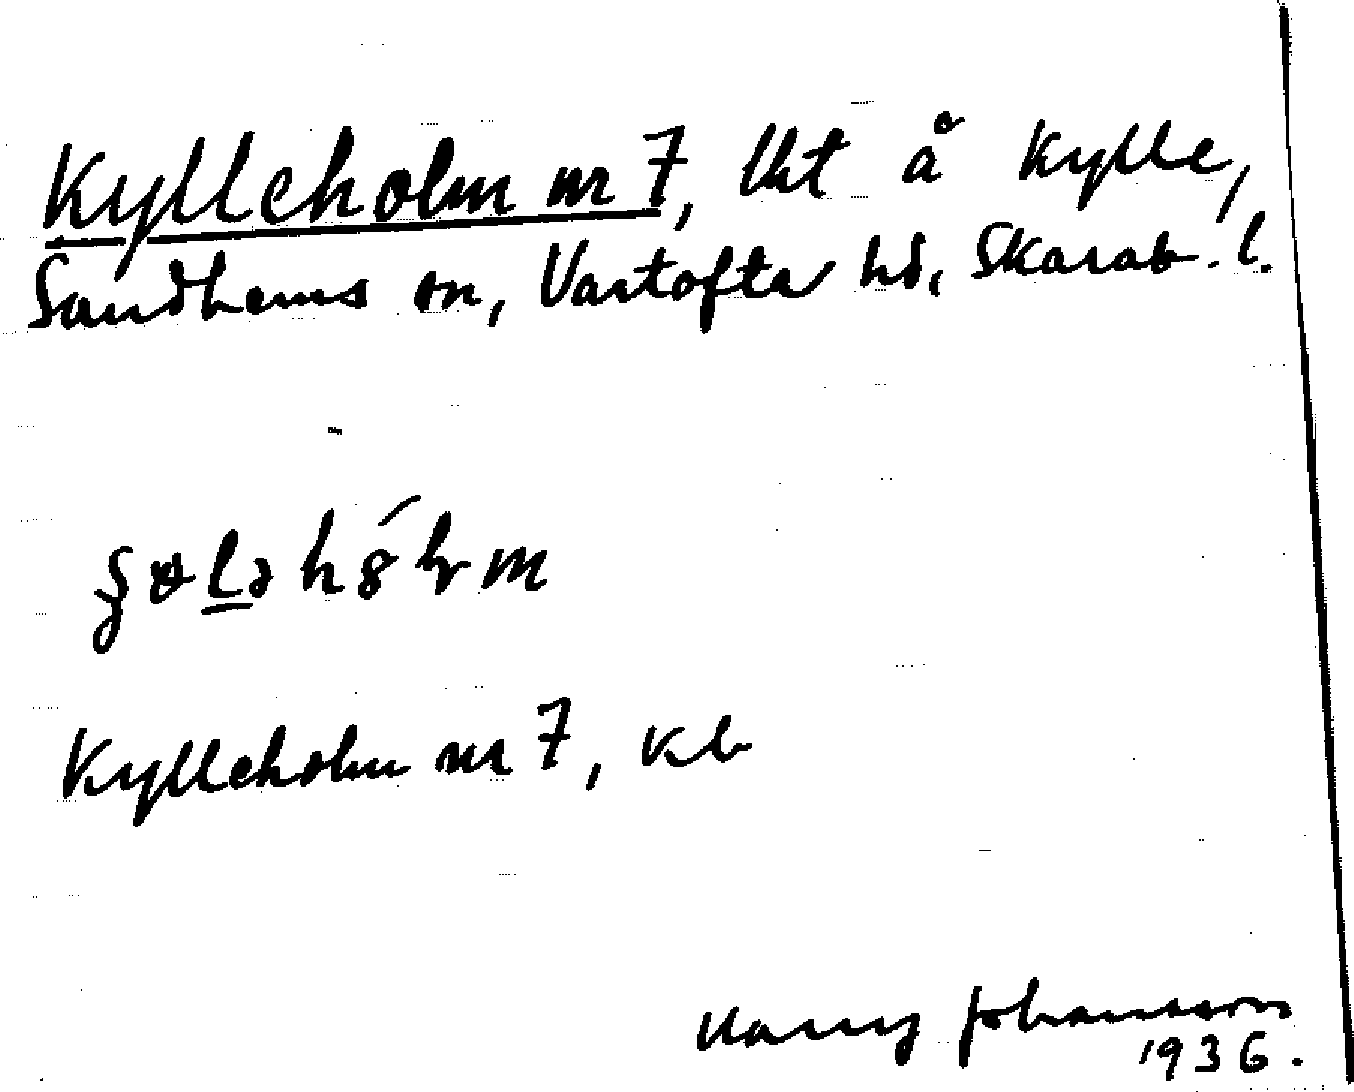 Kylleholm nr 7, lht å Kylle,
Sandhems sn, Vartofta hd, Skarab. l.
Kylleholm nr 7, kb
Harry Johansson
1936.